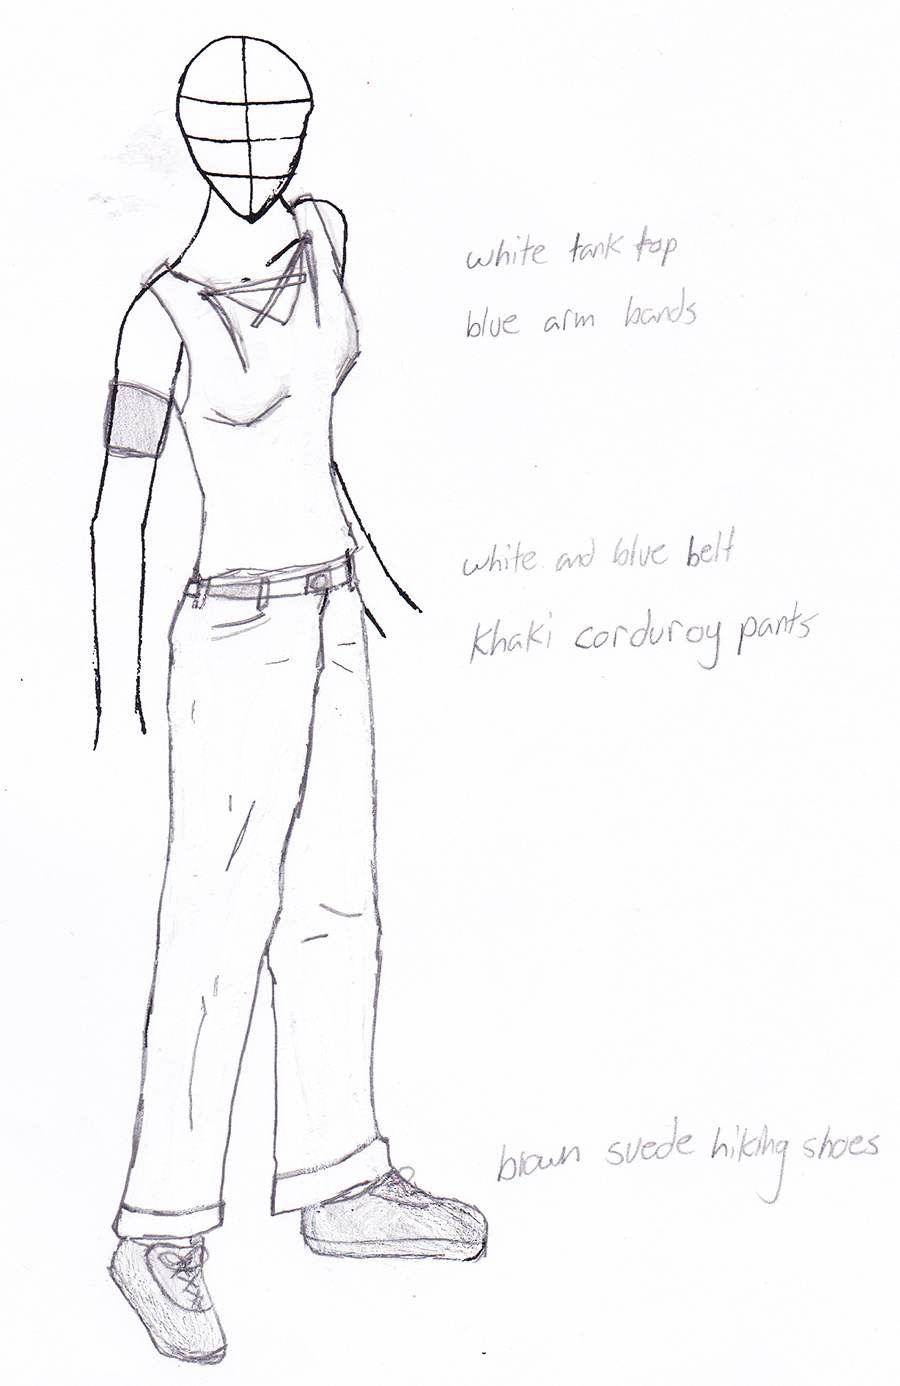 white tank top
blue arm bands
white and blue belt
khaki corduroy pants
brown suede hiking shoes